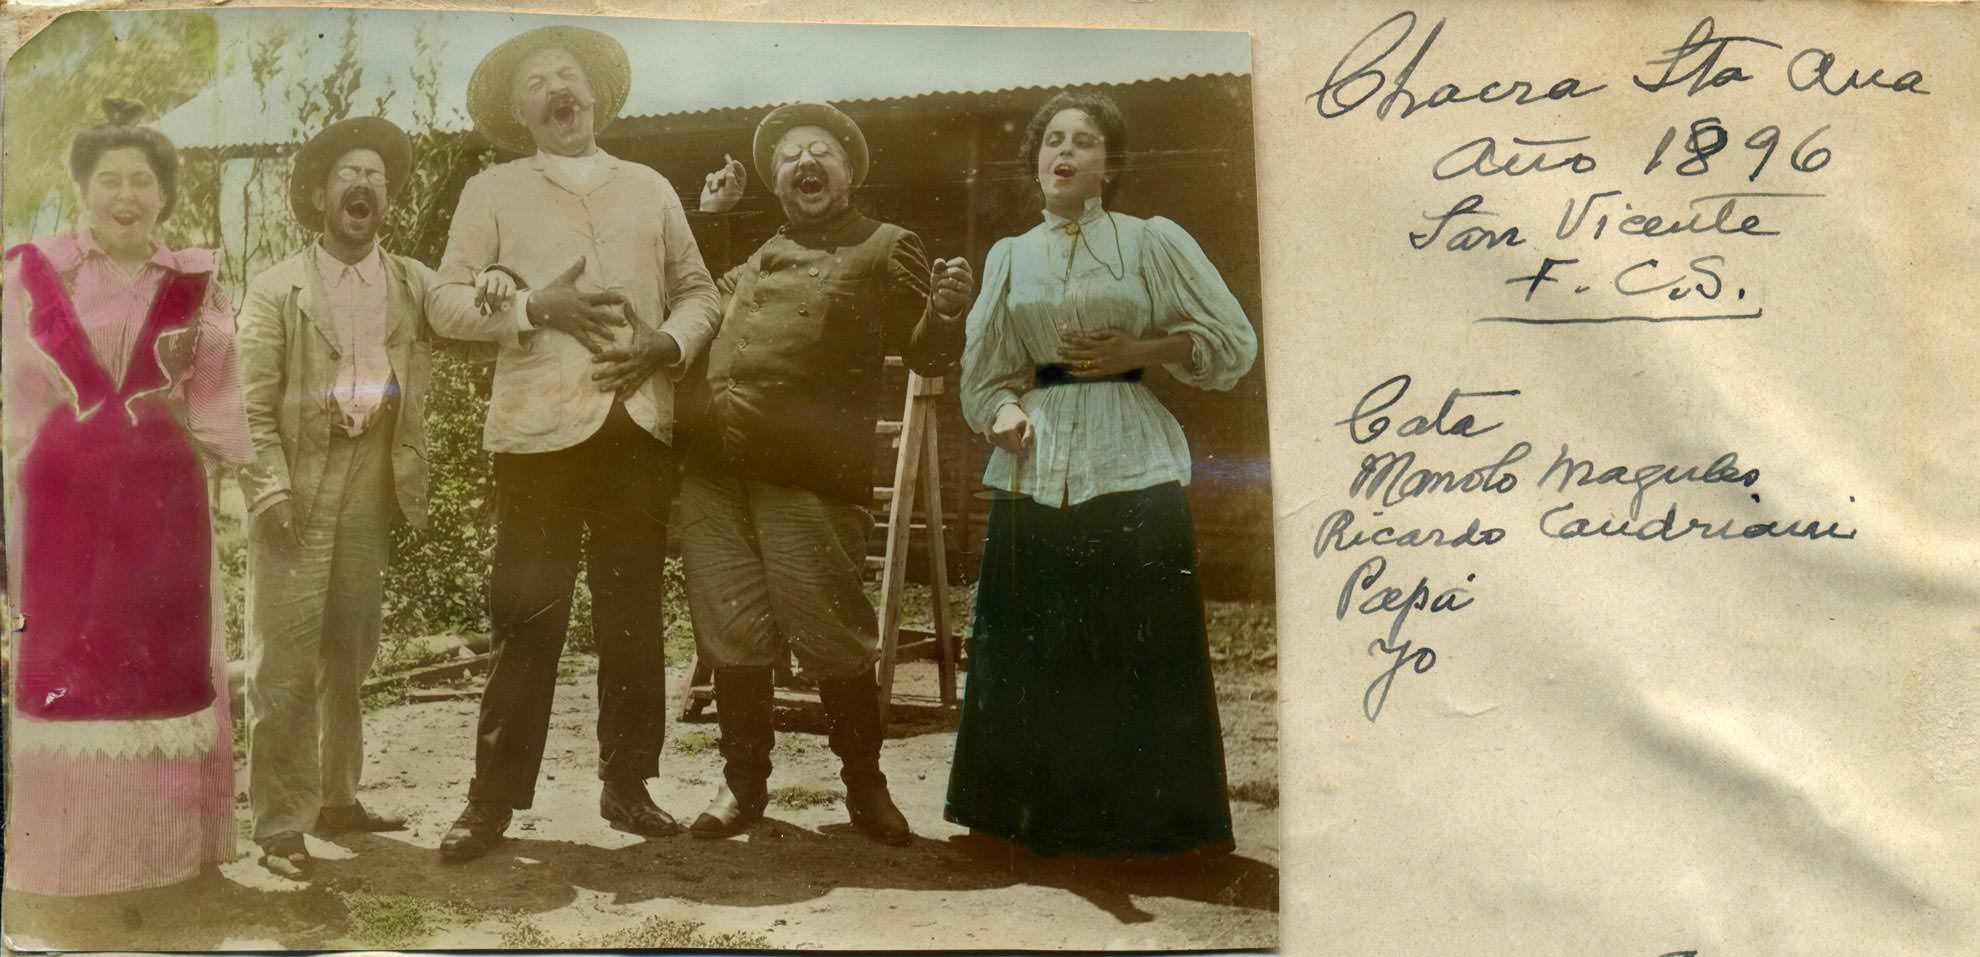 Chacra Sta Ana
Año 1896
San Vicente
F.C.S.
Cata
Manolo Magules
Ricardo Candriani
Papá
Yo